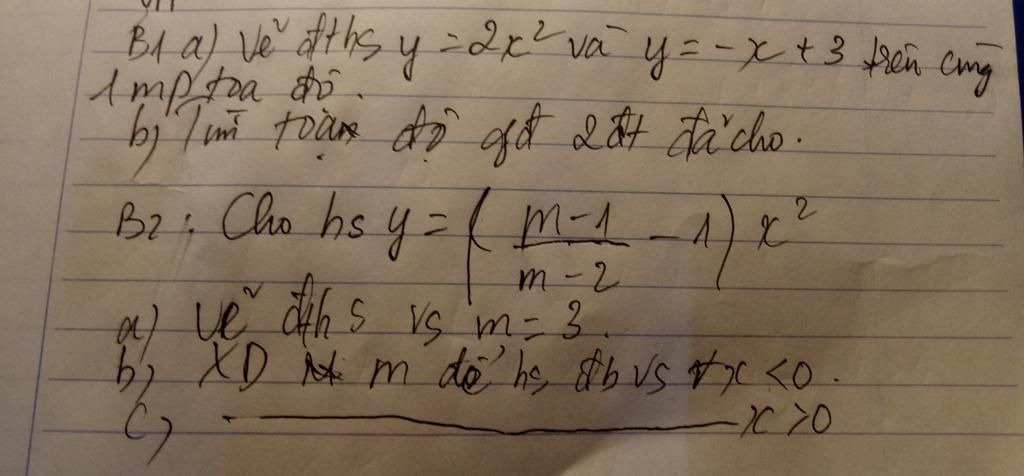 B1 a) vẽ đths y = 2x² và y = -x + 3 trên cùng
1 mp tọa độ.
b) Tìm toàn độ gđ 2 đt đã cho.
B2: Cho hs y = ( (m-1)/(m-2) - 1 ) x²
a) vẽ đths vs m = 3.
b) XD m để hs đb vs ∀x < 0.
c) ——— x > 0